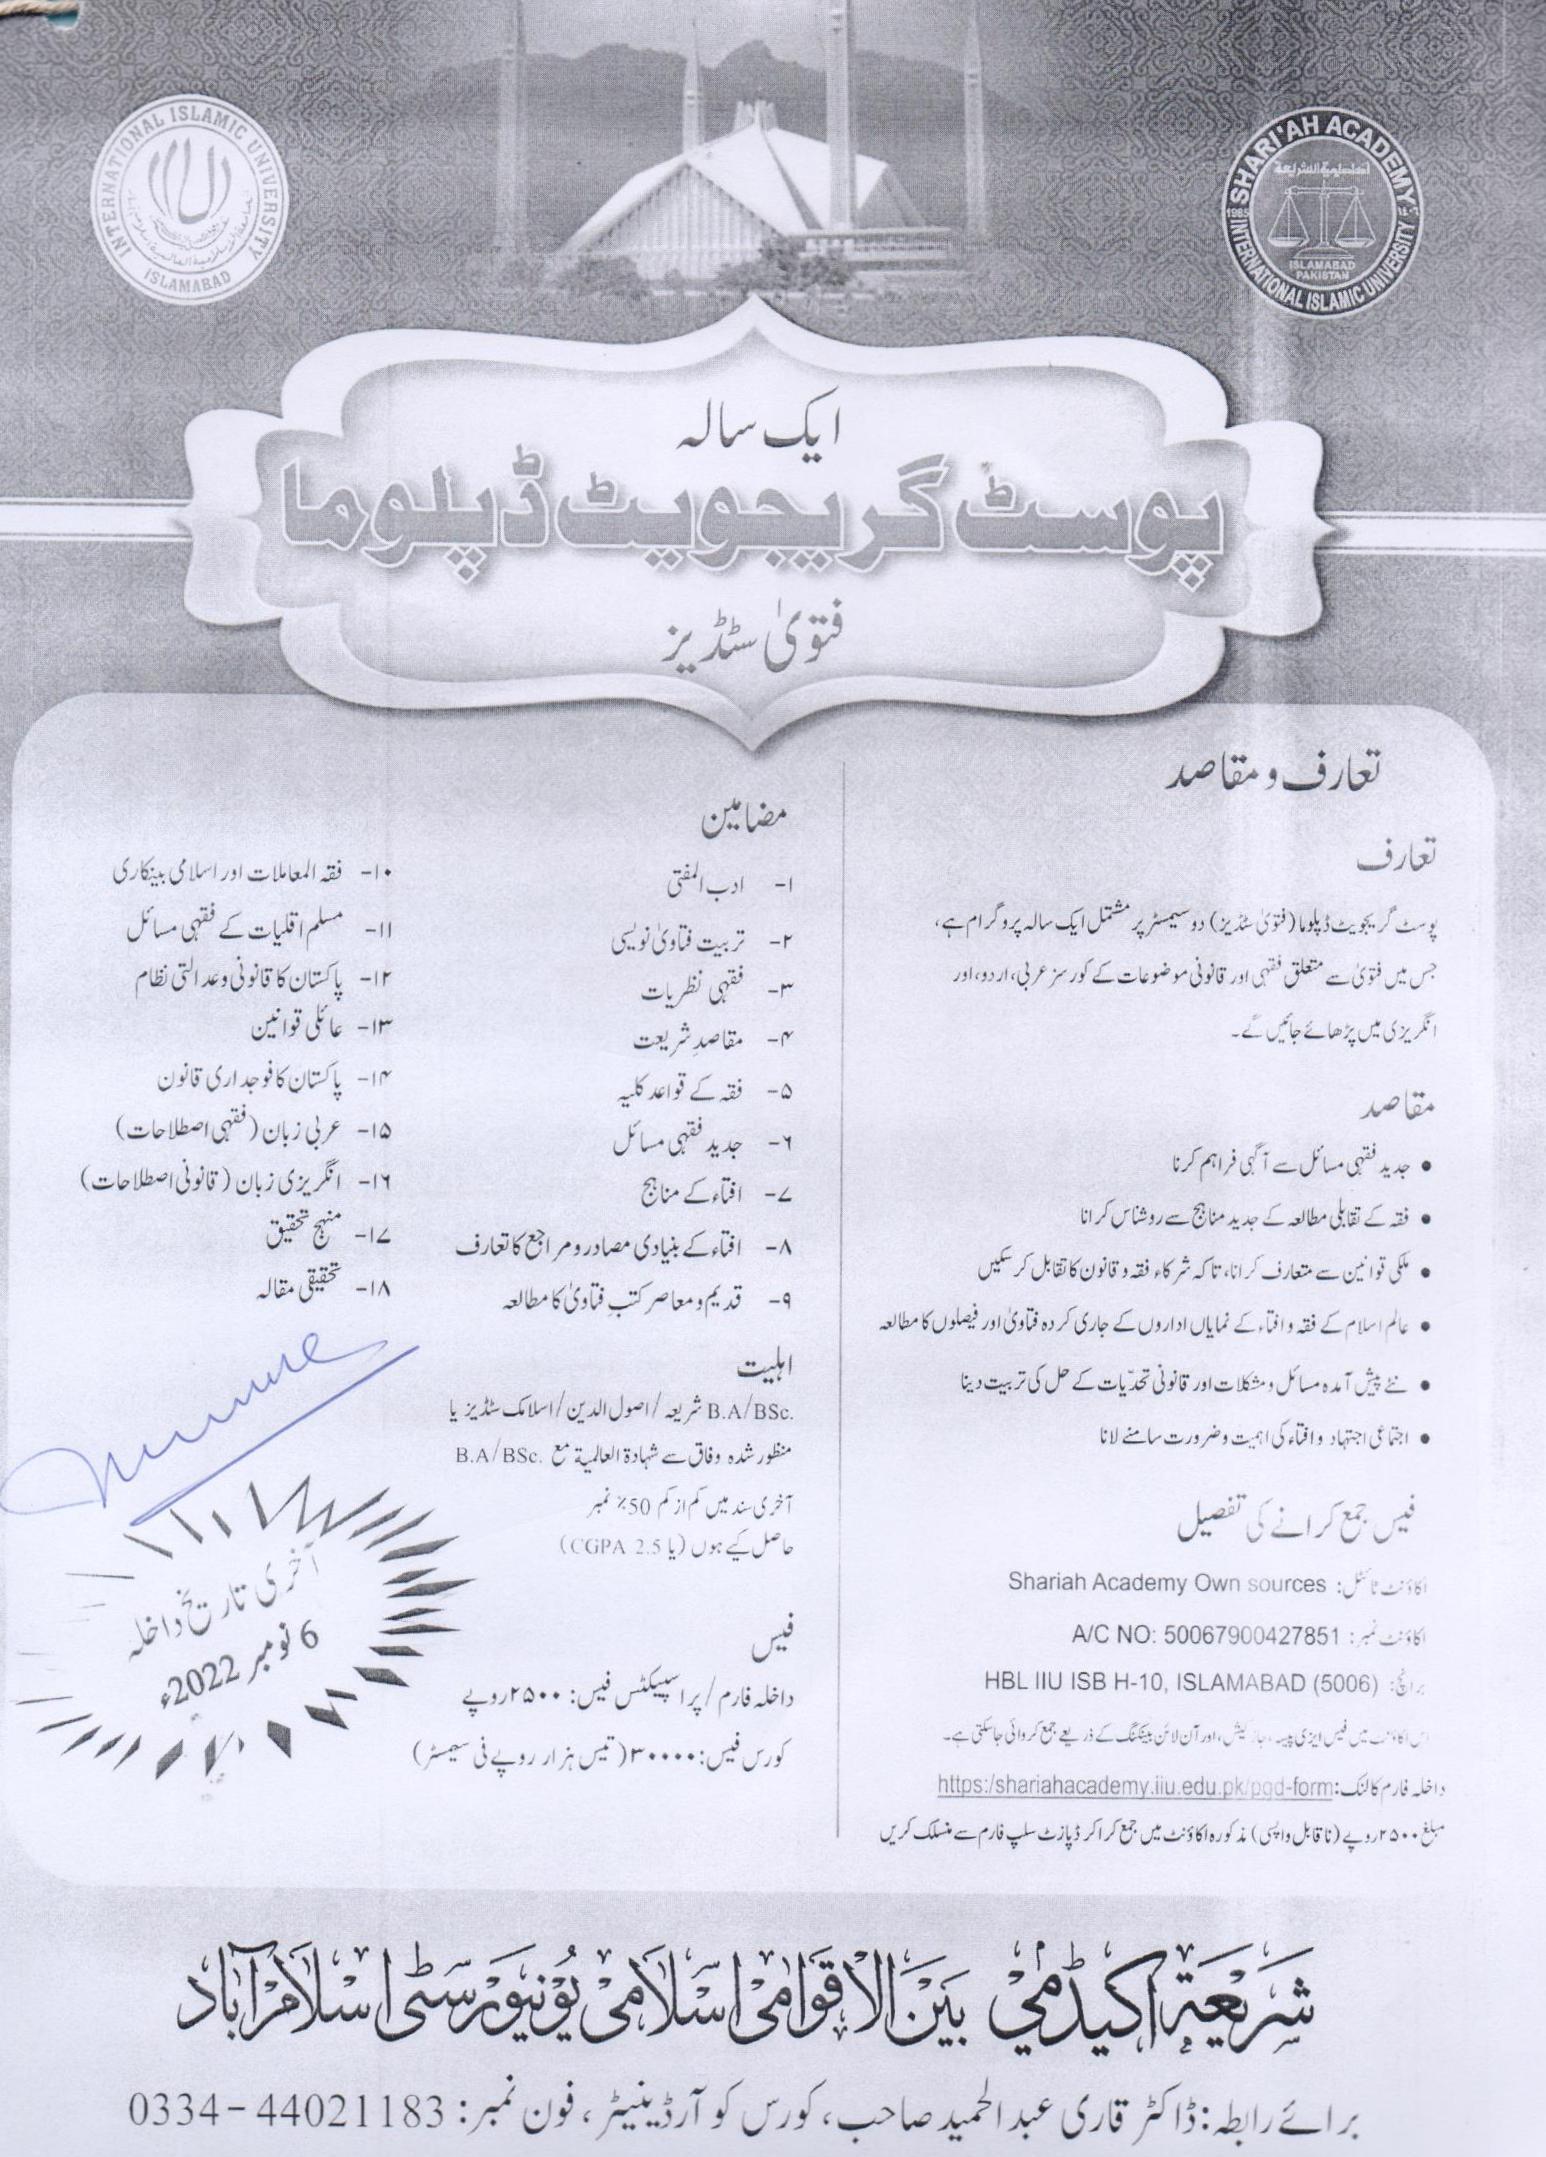 INTERNATIONAL ISLAMIC UNIVERSITY
ISLAMABAD
SHARI'AH ACADEMY
اكاديمية الشريعة
1985
ISLAMABAD
PAKISTAN
INTERNATIONAL ISLAMIC UNIVERSITY
ایک سالہ
پوسٹ گریجویٹ ڈپلوما
فتویٰ سٹڈیز
تعارف و مقاصد
تعارف
پوسٹ گریجویٹ ڈپلوما (فتویٰ سٹڈیز) دو سیمسٹر پر مشتمل ایک سالہ پروگرام ہے،
جس میں فتویٰ سے متعلق فقہی اور قانونی موضوعات کے کورسز عربی، اردو، اور
انگریزی میں پڑھائے جائیں گے۔
مقاصد
• جدید فقہی مسائل سے آگہی فراہم کرنا
• فقہ کے تقابلی مطالعہ کے جدید مناہج سے روشناس کرانا
• ملکی قوانین سے متعارف کرانا، تاکہ شرکاء فقہ و قانون کا تقابل کر سکیں
• عالم اسلام کے فقہ و افتاء کے نمایاں اداروں کے جاری کردہ فتاویٰ اور فیصلوں کا مطالعہ
• نئے پیش آمدہ مسائل و مشکلات اور قانونی تحدّیات کے حل کی تربیت دینا
• اجتماعی اجتہاد و افتاء کی اہمیت و ضرورت سامنے لانا
فیس جمع کرانے کی تفصیل
اکاؤنٹ ٹائٹل: Shariah Academy Own sources
اکاؤنٹ نمبر: A/C NO: 50067900427851
برانچ: HBL IIU ISB H-10, ISLAMABAD (5006)
اس اکاؤنٹ میں فیس ایزی پیسہ، جاز کیش، اور آن لائن بینکنگ کے ذریعے جمع کروائی جا سکتی ہے۔
داخلہ فارم کا لنک: https:/shariahacademy.iiu.edu.pk/pgd-form
مبلغ ۲۵۰۰ روپے (ناقابل واپسی) مذکورہ اکاؤنٹ میں جمع کرا کر ڈپازٹ سلپ فارم سے منسلک کریں
مضامین
۱- ادب المفتی
۲- تربیت فتاویٰ نویسی
۳- فقہی نظریات
۴- مقاصدِ شریعت
۵- فقہ کے قواعد کلیہ
۶- جدید فقہی مسائل
۷- افتاء کے مناہج
۸- افتاء کے بنیادی مصادر و مراجع کا تعارف
۹- قدیم و معاصر کتبِ فتاویٰ کا مطالعہ
۱۰- فقہ المعاملات اور اسلامی بینکاری
۱۱- مسلم اقلیات کے فقہی مسائل
۱۲- پاکستان کا قانونی و عدالتی نظام
۱۳- عائلی قوانین
۱۴- پاکستان کا فوجداری قانون
۱۵- عربی زبان (فقہی اصطلاحات)
۱۶- انگریزی زبان (قانونی اصطلاحات)
۱۷- منہج تحقیق
۱۸- تحقیقی مقالہ
اہلیت
B.A/BSc. شریعہ / اصول الدین / اسلامک سٹڈیز یا
منظور شدہ وفاق سے شہادۃ العالمیۃ مع B.A/BSc.
آخری سند میں کم از کم 50٪ نمبر
حاصل کیے ہوں (یا CGPA 2.5)
فیس
داخلہ فارم / پراسپیکٹس فیس: ۲۵۰۰ روپے
کورس فیس: ۳۰۰۰۰ (تیس ہزار روپے فی سیمسٹر)
آخری تاریخ داخلہ
6 نومبر 2022ء
شریعۃ اکیڈمی بین الاقوامی اسلامی یونیورسٹی اسلام آباد
برائے رابطہ: ڈاکٹر قاری عبد الحمید صاحب، کورس کوآرڈینیٹر، فون نمبر: 0334-44021183